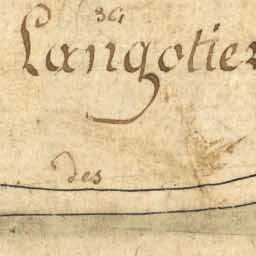 34
Langotier
des